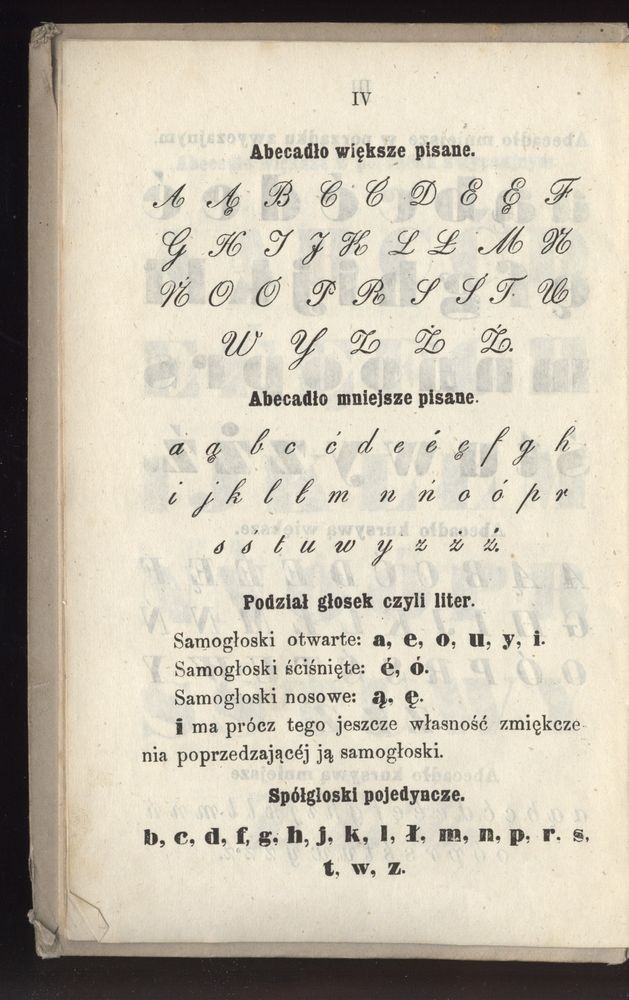 IV
Abecadło większe pisane.
A Ą B C Ć D E Ę F
G H I J K L Ł M N
Ń O Ó P R S Ś T U
W Y Z Ż Ź.
Abecadło mniejsze pisane.
a ą b c ć d e é ę f g h
i j k l ł m n ń o ó p r
s ś t u w y z ż ź.
Podział głosek czyli liter.
Samogłoski otwarte: a, e, o, u, y, i.
Samogłoski ściśnięte: é, ó.
Samogłoski nosowe: ą, ę.
i ma prócz tego jeszcze własność zmiękcze-
nia poprzedzającéj ją samogłoski.
Spółgłoski pojedyncze.
b, c, d, f, g, h, j, k, l, ł, m, n, p, r, s,
t, w, z.